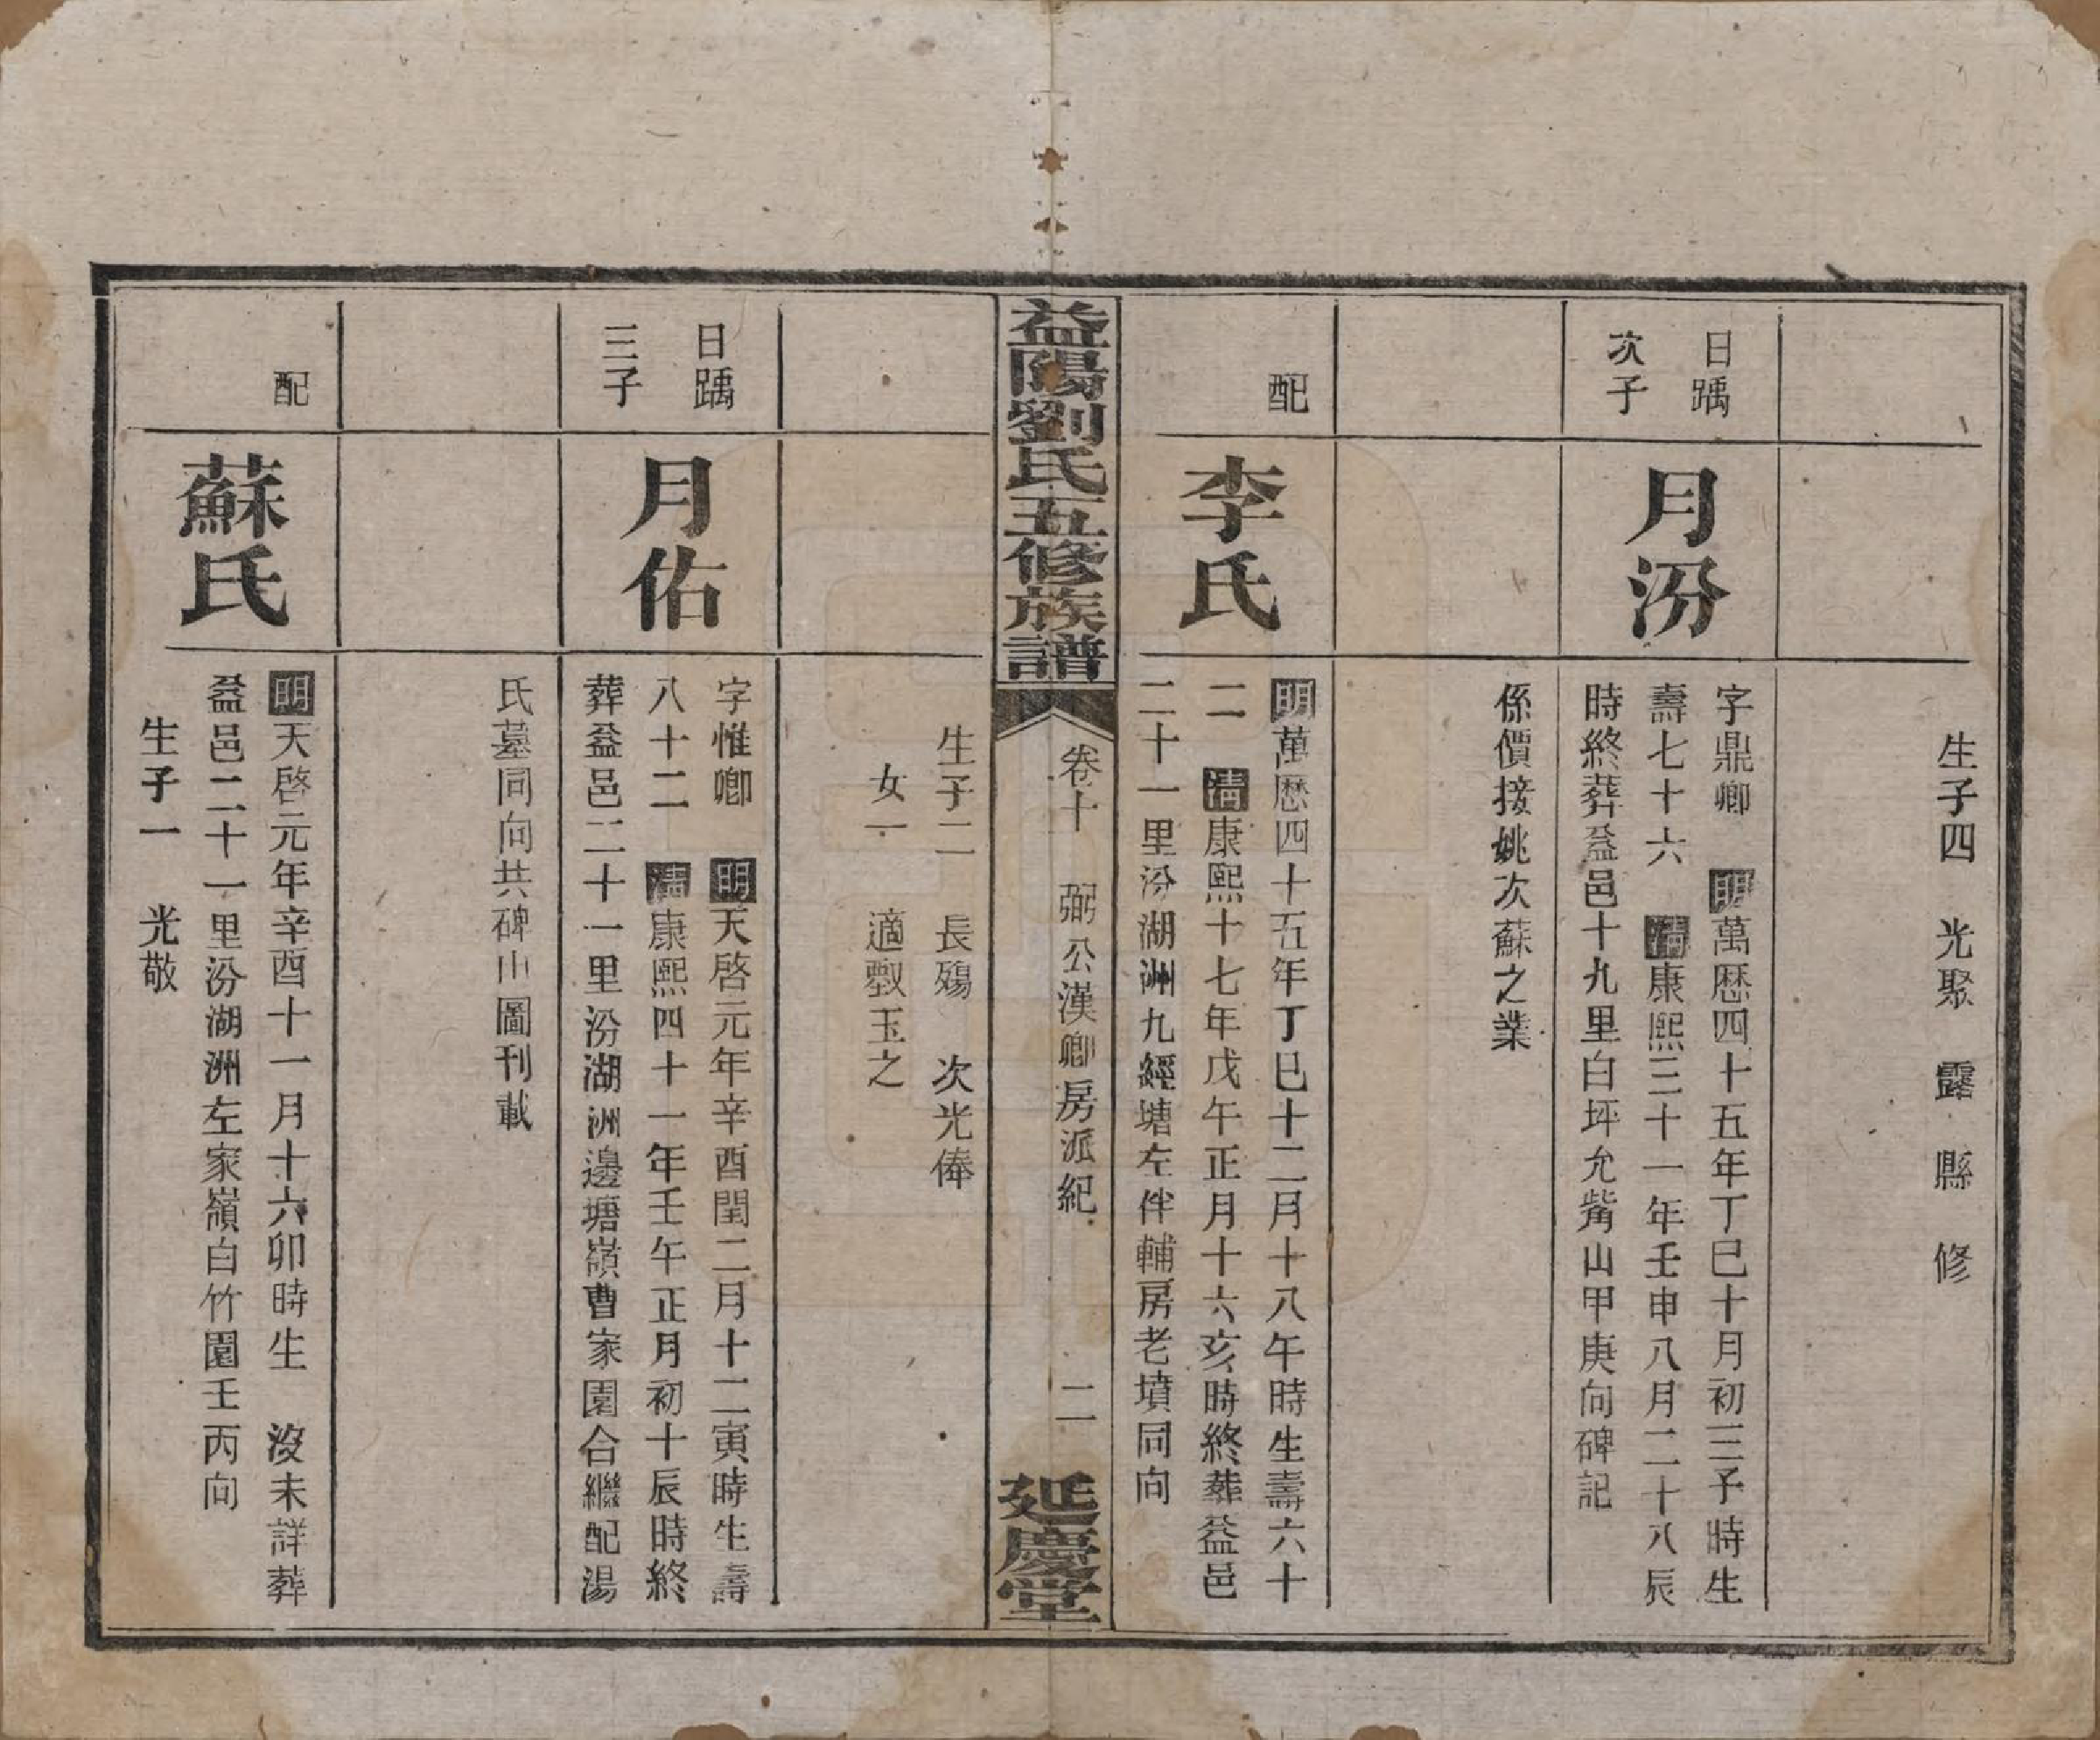 生子四　光聚　露　縣　修
日踽
次子
月汾
字鼎卿　明萬歷四十五年丁巳十月初三予時生
壽七十六　清康熙三十一年壬申八月二十八辰
時終葬益邑十九里白坪允觜山甲庚向碑記
係價接姚次蘇之業
配
李氏
明萬歷四十五年丁巳十二月十八午時生壽六十
二　清康熙十七年戊午正月十六亥時終葬益邑
二十一里汾湖洲九經塘左伴輔房老墳同向
益陽劉氏五修族譜
卷十　弼公漢卿房派紀
二
延慶堂
生子二　長殤　次光俸
女一　適　玉之
日踽
三子
月佑
字惟卿　明天啓元年辛酉閏二月十二寅時生壽
八十二　清康熙四十一年壬午正月初十辰時終
葬益邑二十一里汾湖洲邊塘嶺曹家園合繼配湯
氏墓同向共碑山圖刊載
配
蘇氏
明天啓元年辛酉十一月十六卯時生　沒未詳葬
益邑二十一里汾湖洲左家嶺白竹園壬丙向
生子一　光敬